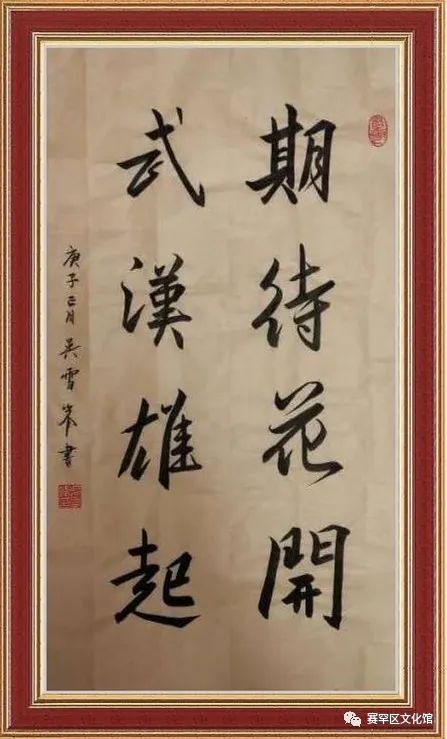 期待花開
武漢雄起
庚子正月吴雪峯書
赛罕区文化馆